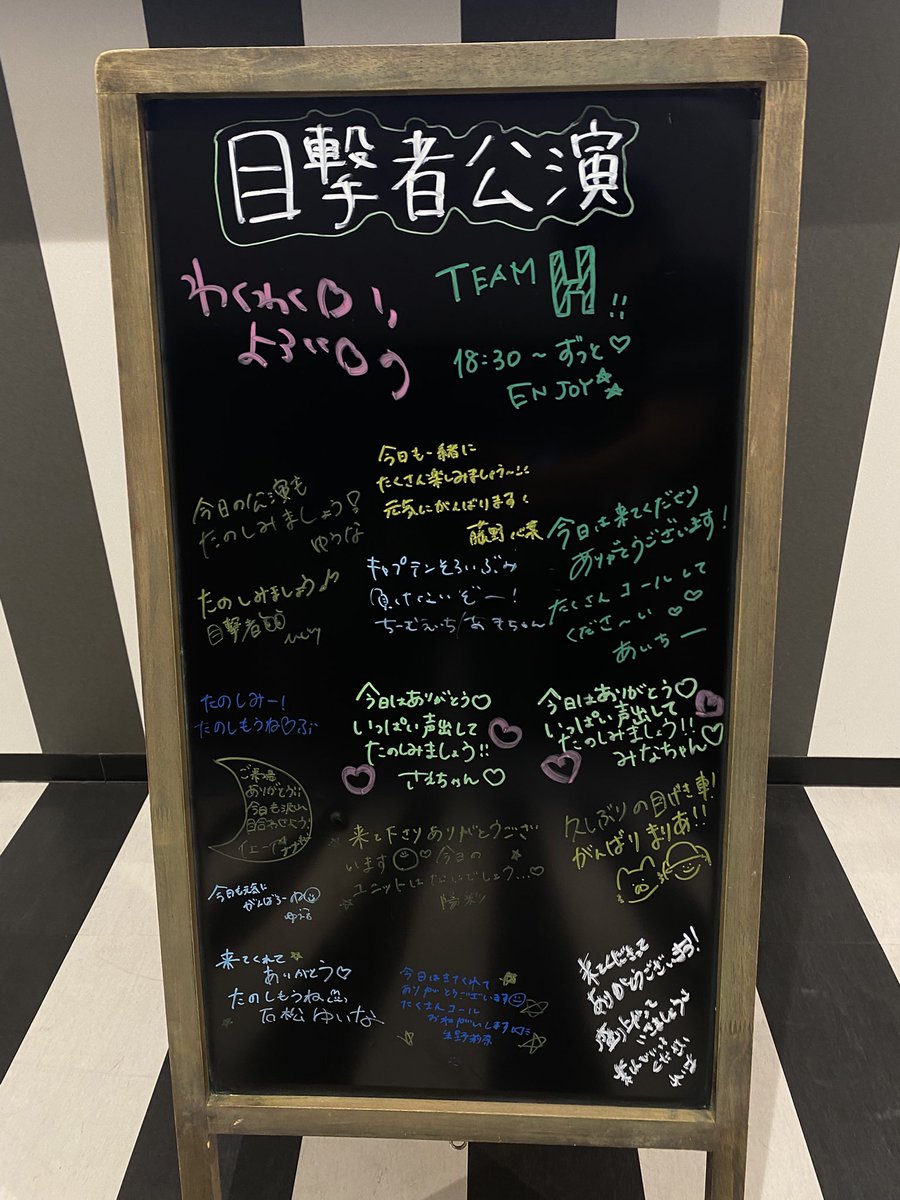 目撃者公演
わくわくD!,
TEAM H!!
18:30～ずっと♡
ENJOY
今日も一緒に
たくさん楽しみましょう〜
元気にがんばります!
藤野心菜
今日の公演も
たのしみましょう!
ゆうな
今日は来てくださり
ありがとうございます!
たくさんコールして
くださ〜い♡♡
あいちー
たのしみましょう♪
目撃者
キャプテンそろいぶみ
負けないぞー!
ちーむえいち/あきちゃん
たのしみー!
たのしもうね♡ぶ
今日はありがとう♡
いっぱい声出して
たのしみましょう!!
さえちゃん♡
今日はありがとう♡
いっぱい声出して
たのしみましょう!!
みなちゃん♡
ご来場
ありがとう
今日も沢山
目合わせよう
イェーイ
来て下さりありがとうござい
います♡今日の
ユニットはなにでしょう...♡
陽彩
久しぶりの目げき車!
がんばりまりあ!!
今日も元気に
がんばろーね
来てくれて
ありがとう♡
たのしもうね
石松ゆいな
今日はきてくれて
ありがとうございます
たくさんコール
おねがいします
生野莉奈
来てくださって
ありがとうございます!